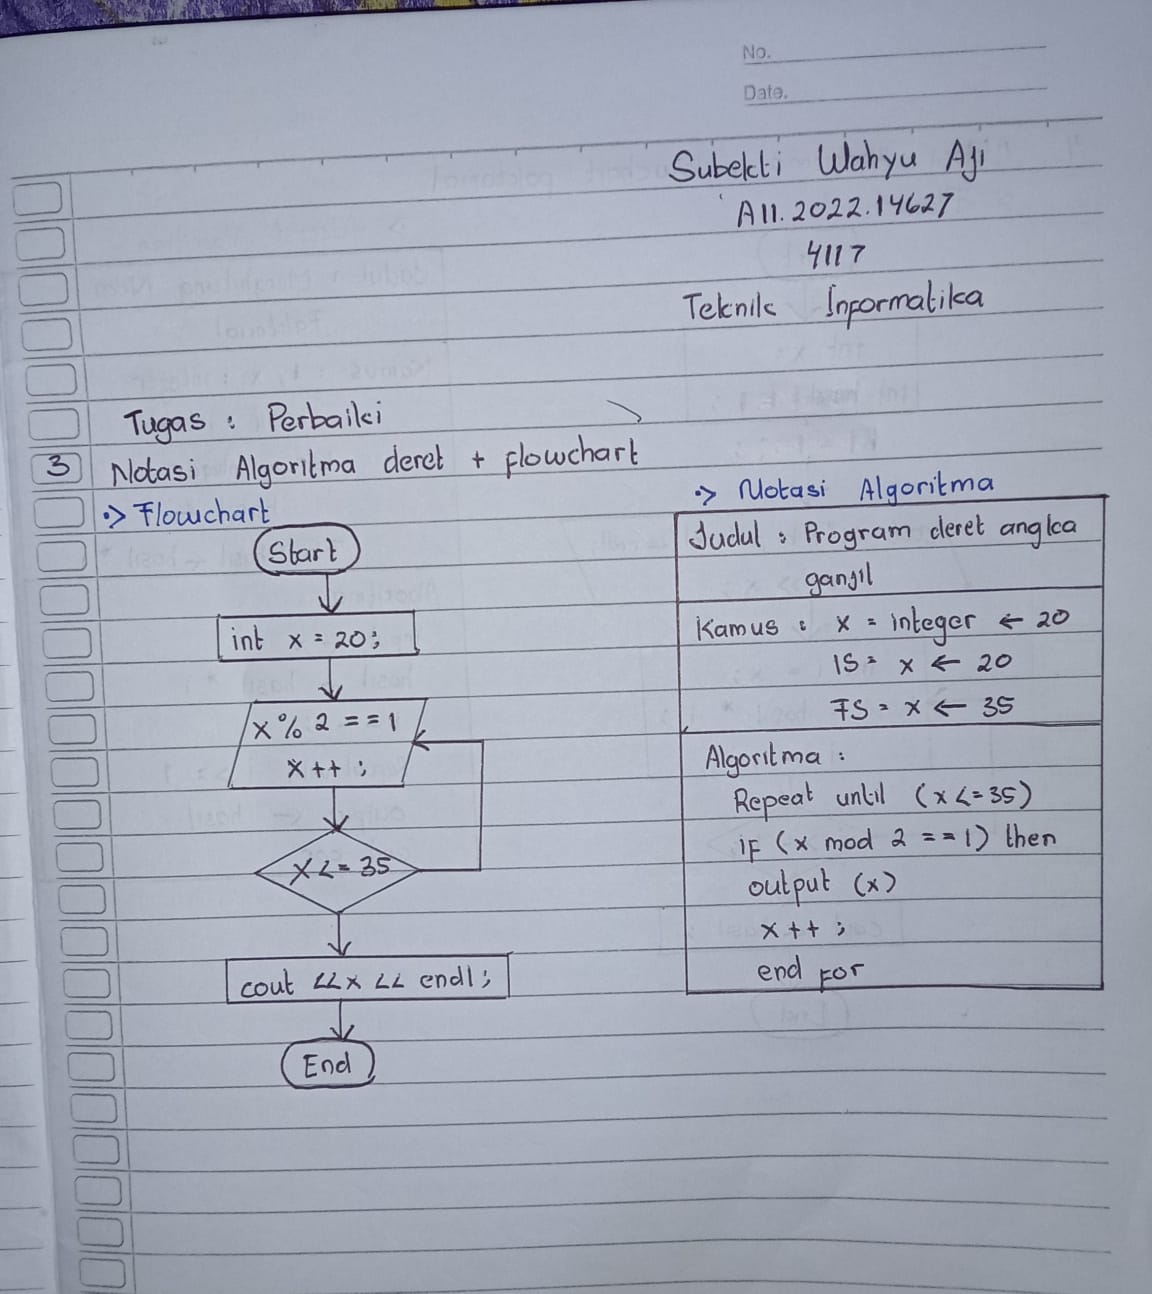 No.
Date.
Subekti Wahyu Aji
A11.2022.14627
4117
Teknik Informatika
Tugas : Perbaiki
3 Notasi Algoritma deret + flowchart
-> Flowchart
Start
int x = 20;
x % 2 == 1
x++ ;
x <= 35
cout << x << endl;
End
-> Notasi Algoritma
Judul : Program deret angka
ganjil
Kamus : x = integer ← 20
IS = x ← 20
FS = x ← 35
Algoritma :
Repeat until (x <= 35)
if (x mod 2 == 1) then
output (x)
x++ ;
end For